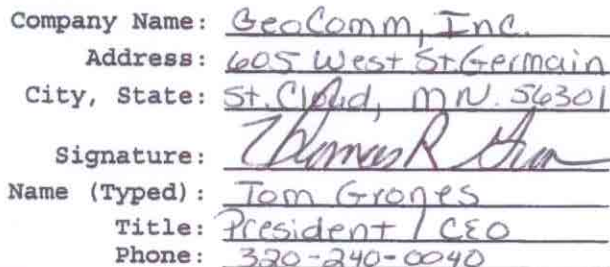 Company Name: GeoComm, Inc.
Address: 605 West St. Germain
City, State: St. Cloud, MN. 56301
Signature: Thomas R
Name (Typed): Tom Grones
Title: President / CEO
Phone: 320-240-0040